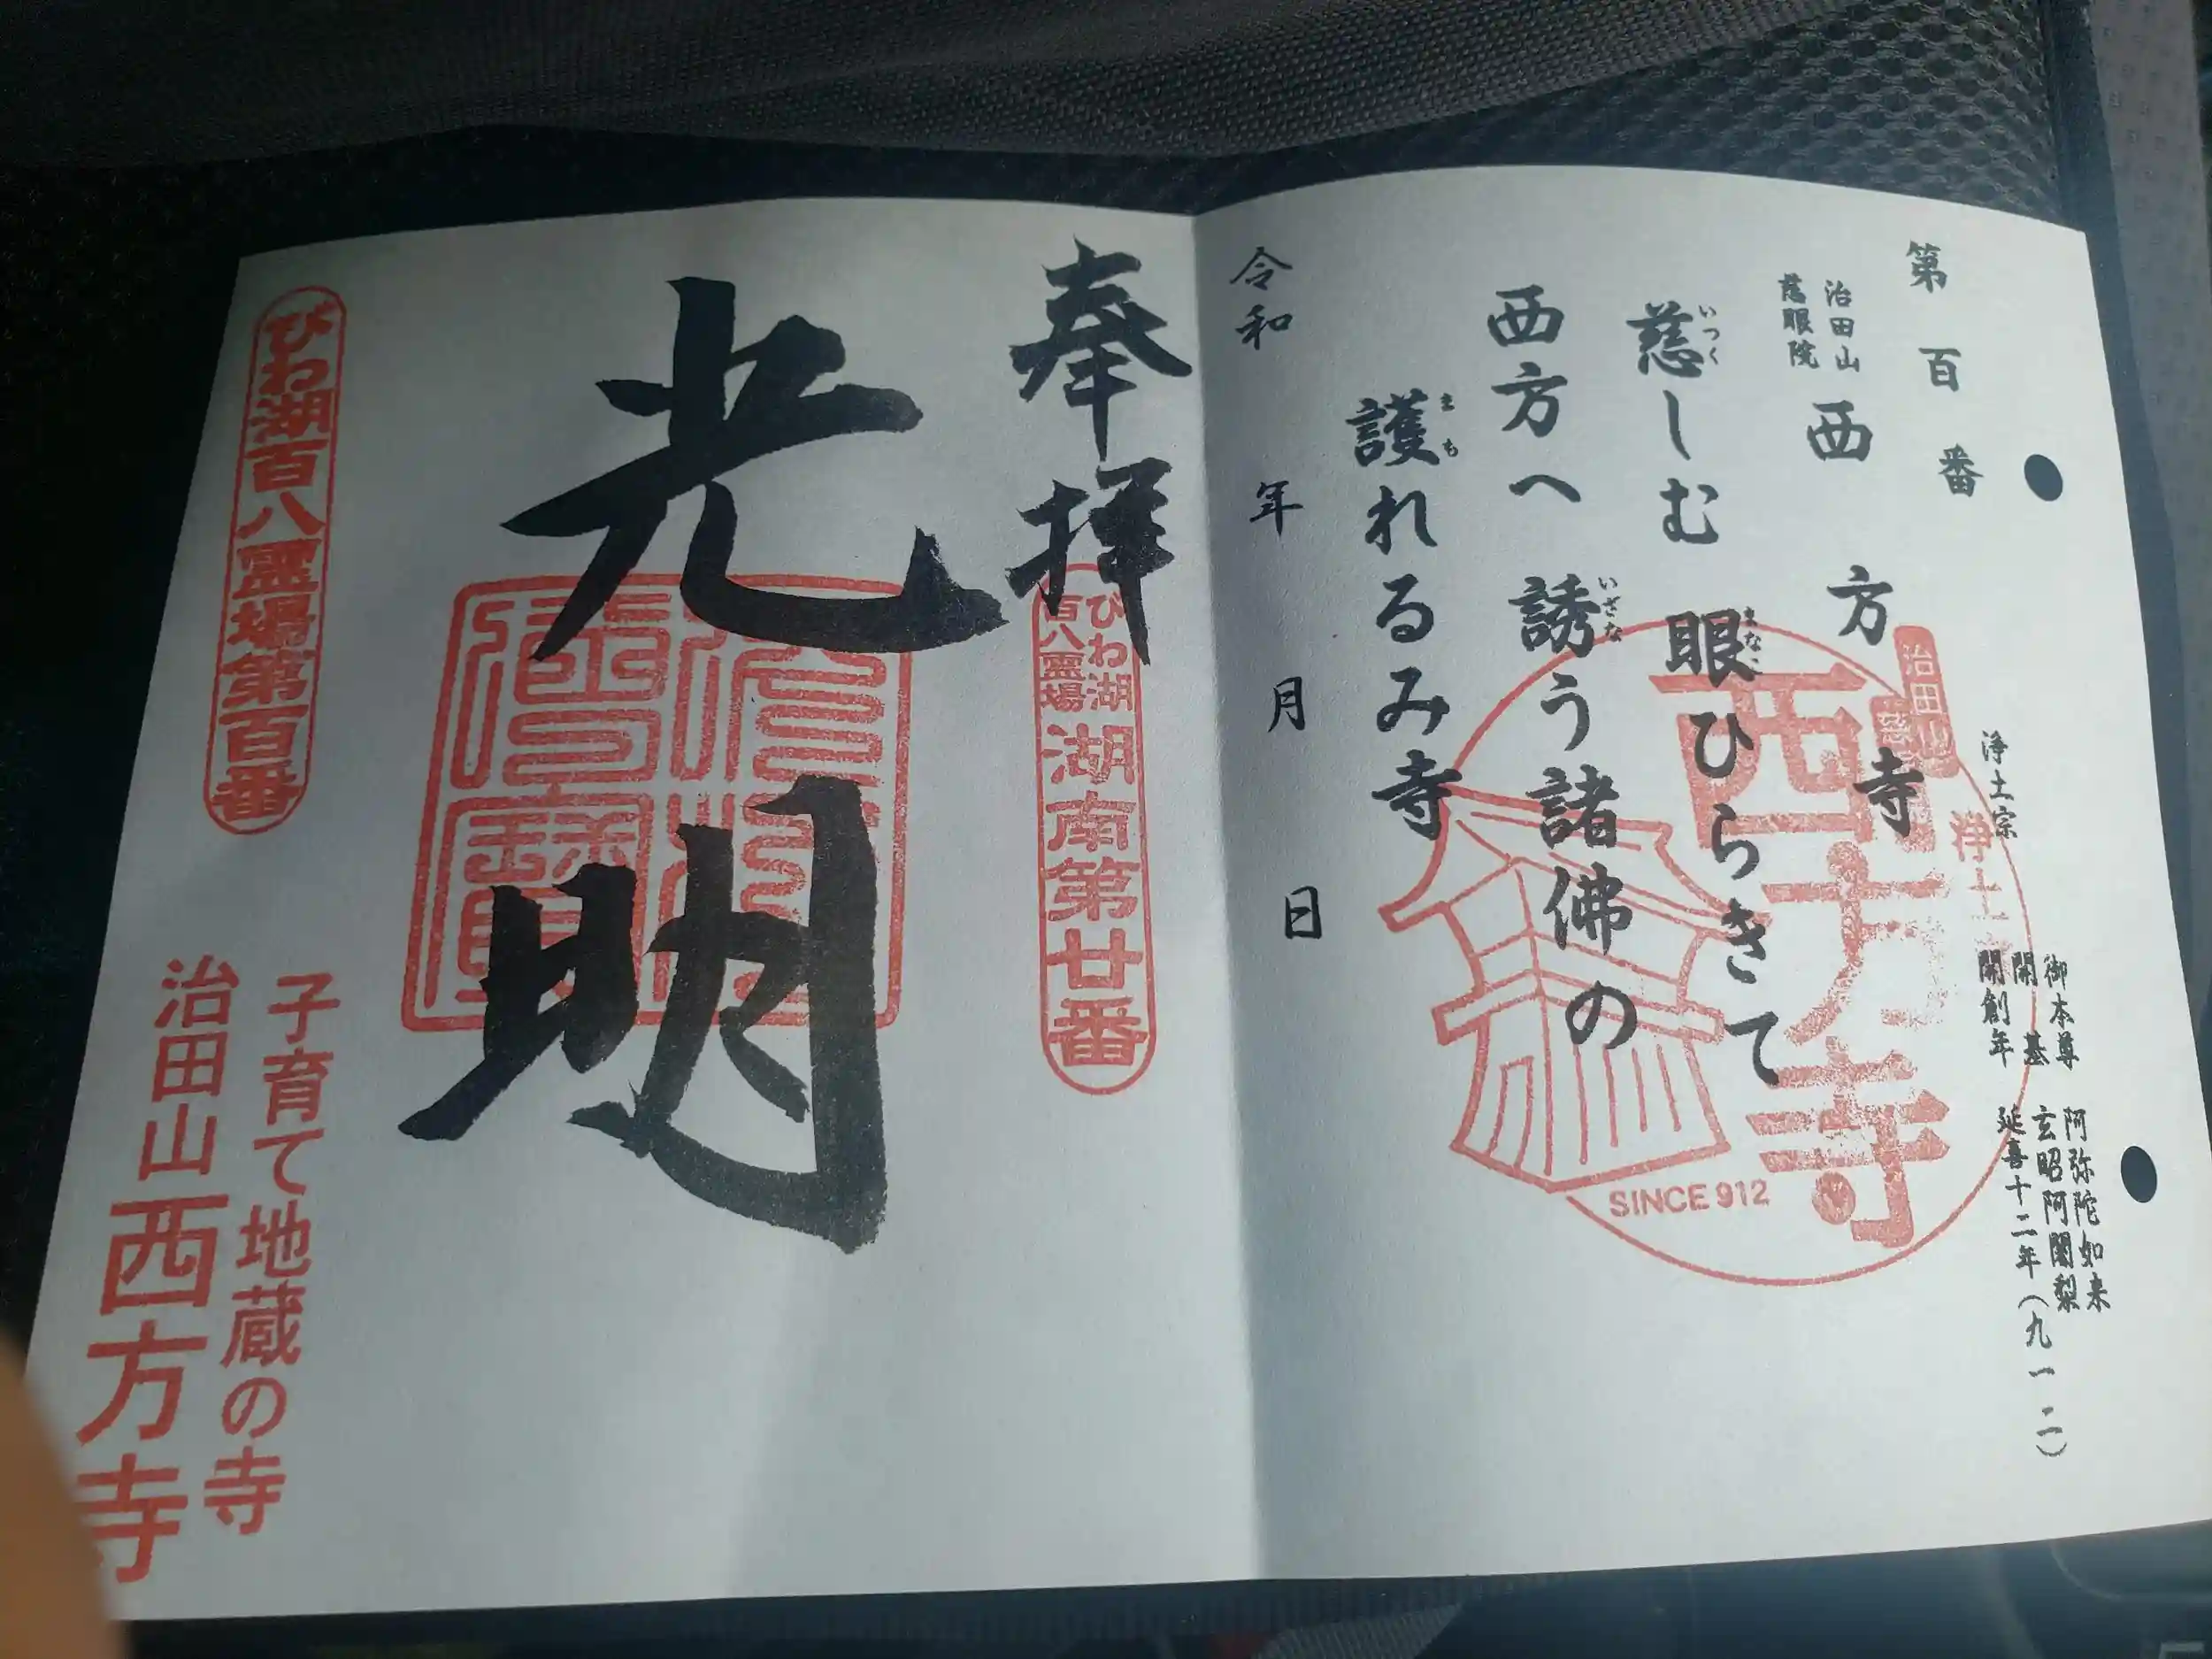 第百番
治田山
慈眼院
西方寺
浄土宗
御本尊 阿弥陀如来
開基 玄昭阿闍梨
開創年 延喜十二年(九一二)
慈しむ 眼ひらきて
いつく まなこ
西方へ 誘う諸佛の
いざな
護れるみ寺
まも
令和 年 月 日
治田山
西方寺
浄土
SINCE 912
奉拝
びわ湖
百八霊場
湖南第廿番
光明
びわ湖百八霊場第百番
子育て地蔵の寺
治田山西方寺